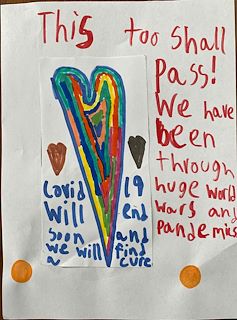 This too shall
pass!
We have
been
through
huge world
wars and
pandemics
Covid 19
will end
soon and
we will find
a cure